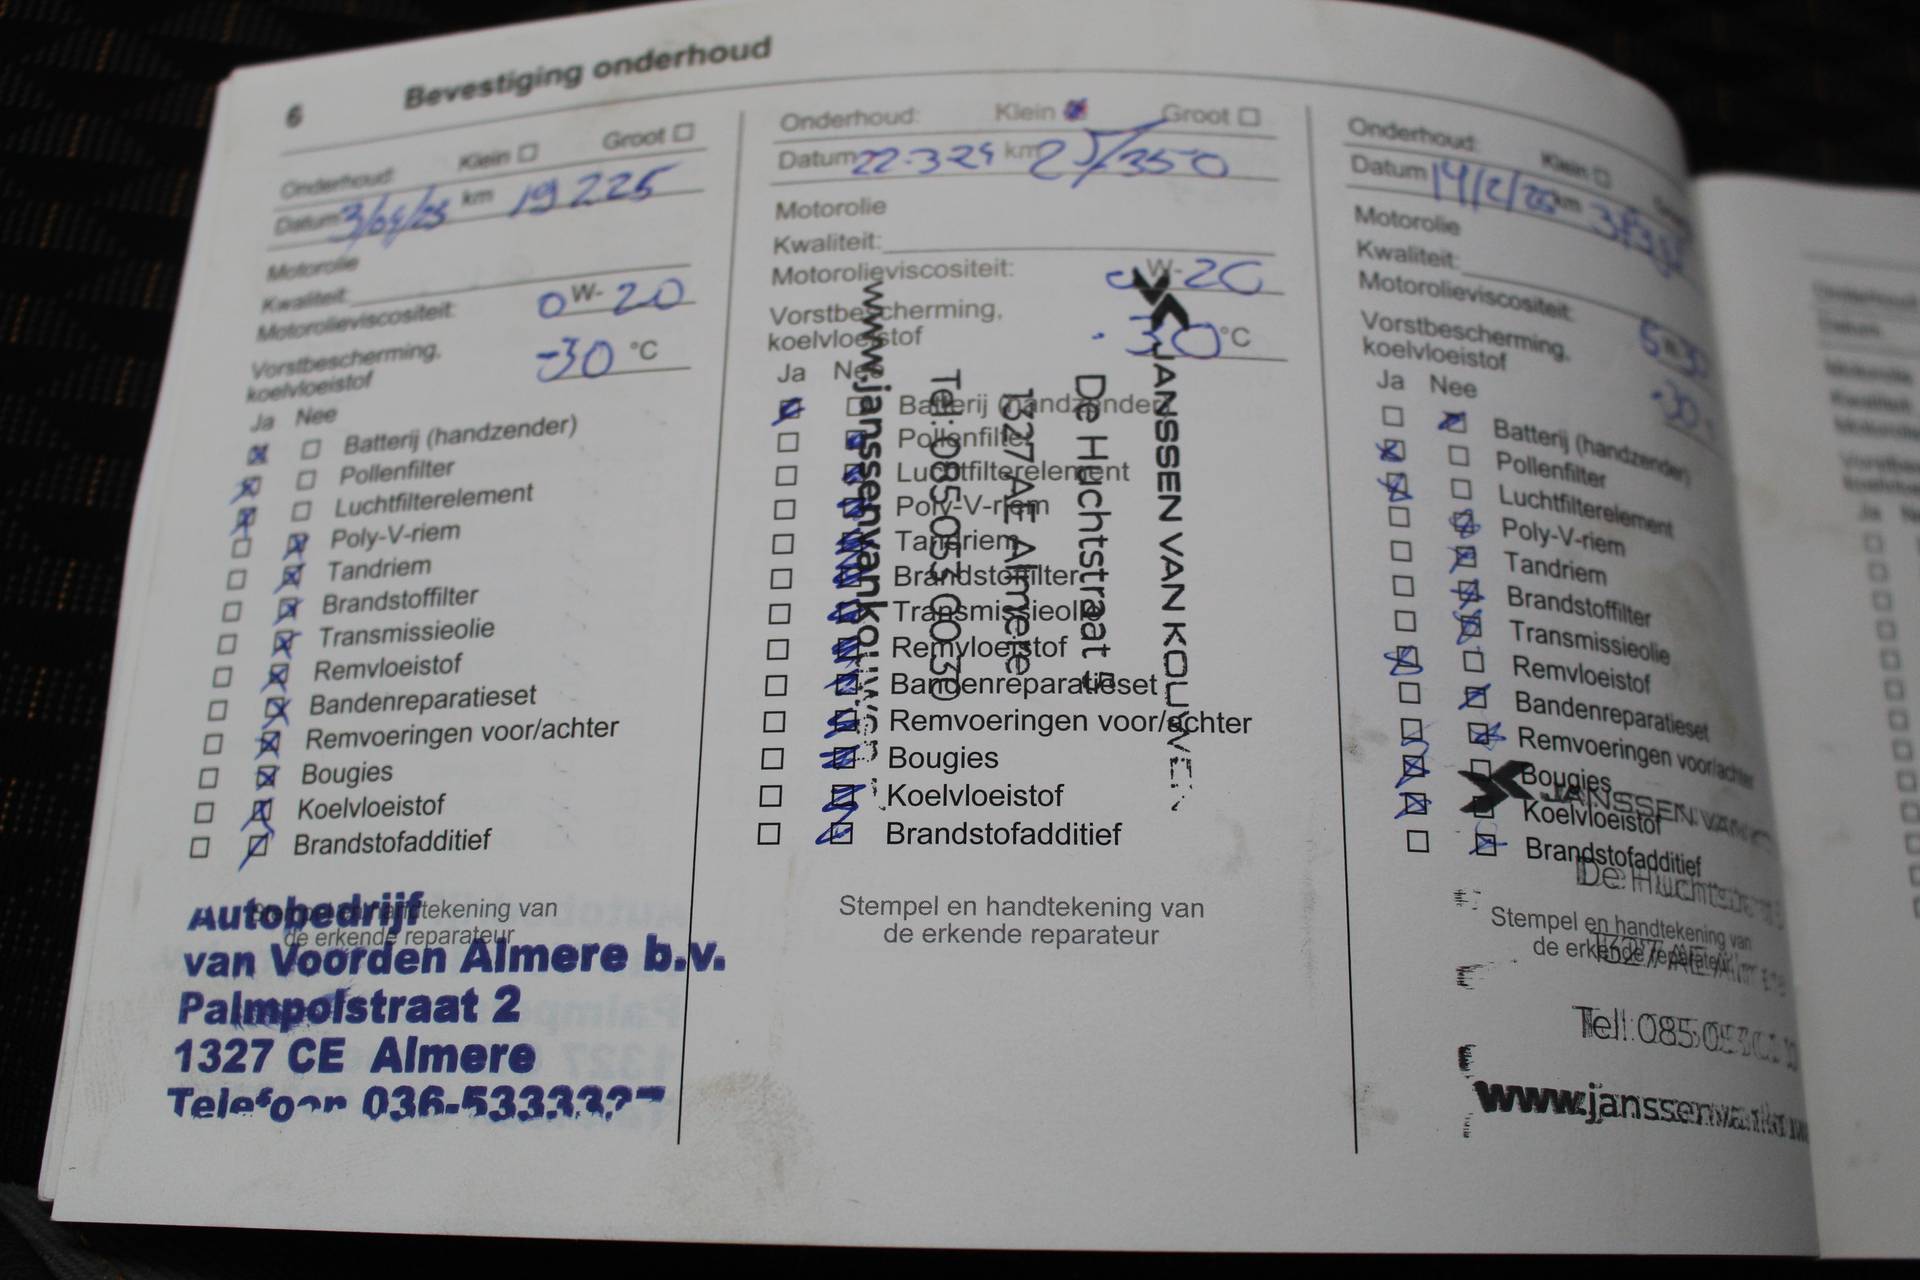 6 Bevestiging onderhoud
Onderhoud: Klein Groot
Datum km 19225
Motorolie
Kwaliteit:
Motorolieviscositeit: 0 W- 20
Vorstbescherming,
koelvloeistof -30 °C
Ja Nee
Batterij (handzender)
Pollenfilter
Luchtfilterelement
Poly-V-riem
Tandriem
Brandstoffilter
Transmissieolie
Remvloeistof
Bandenreparatieset
Remvoeringen voor/achter
Bougies
Koelvloeistof
Brandstofadditief
Stempel en handtekening van
de erkende reparateur
Autobedrijf
van Voorden Almere b.v.
Palmpolstraat 2
1327 CE Almere
Telefoon 036-5333327
Onderhoud: Klein Groot
Datum 22-3-24 km 25/350
Motorolie
Kwaliteit:
Motorolieviscositeit: 0 W- 20
Vorstbescherming,
koelvloeistof -30 °C
Ja Nee
Batterij (handzender)
Pollenfilter
Luchtfilterelement
Poly-V-riem
Tandriem
Brandstoffilter
Transmissieolie
Remvloeistof
Bandenreparatieset
Remvoeringen voor/achter
Bougies
Koelvloeistof
Brandstofadditief
Stempel en handtekening van
de erkende reparateur
JANSSEN VAN KOUWEN
De Huchtstraat 5
1327 AE Almere
Tel: 085 053 00 30
www.janssenvankouwen
Onderhoud: Klein
Datum km
Motorolie
Kwaliteit:
Motorolieviscositeit: 5 30
Vorstbescherming,
koelvloeistof -30
Ja Nee
Batterij (handzender)
Pollenfilter
Luchtfilterelement
Poly-V-riem
Tandriem
Brandstoffilter
Transmissieolie
Remvloeistof
Bandenreparatieset
Remvoeringen voor/achter
Bougies
Koelvloeistof
Brandstofadditief
Stempel en handtekening van
de erkende reparateur
JANSSEN VAN
De Huchtstraat
1327 AE Alme
Tel: 085 053
www.janssenvankouw